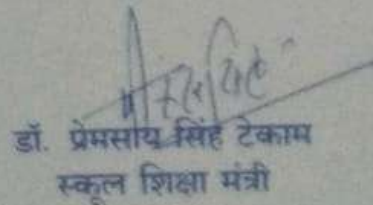 डॉ. प्रेमसाय सिंह टेकाम
स्कूल शिक्षा मंत्री